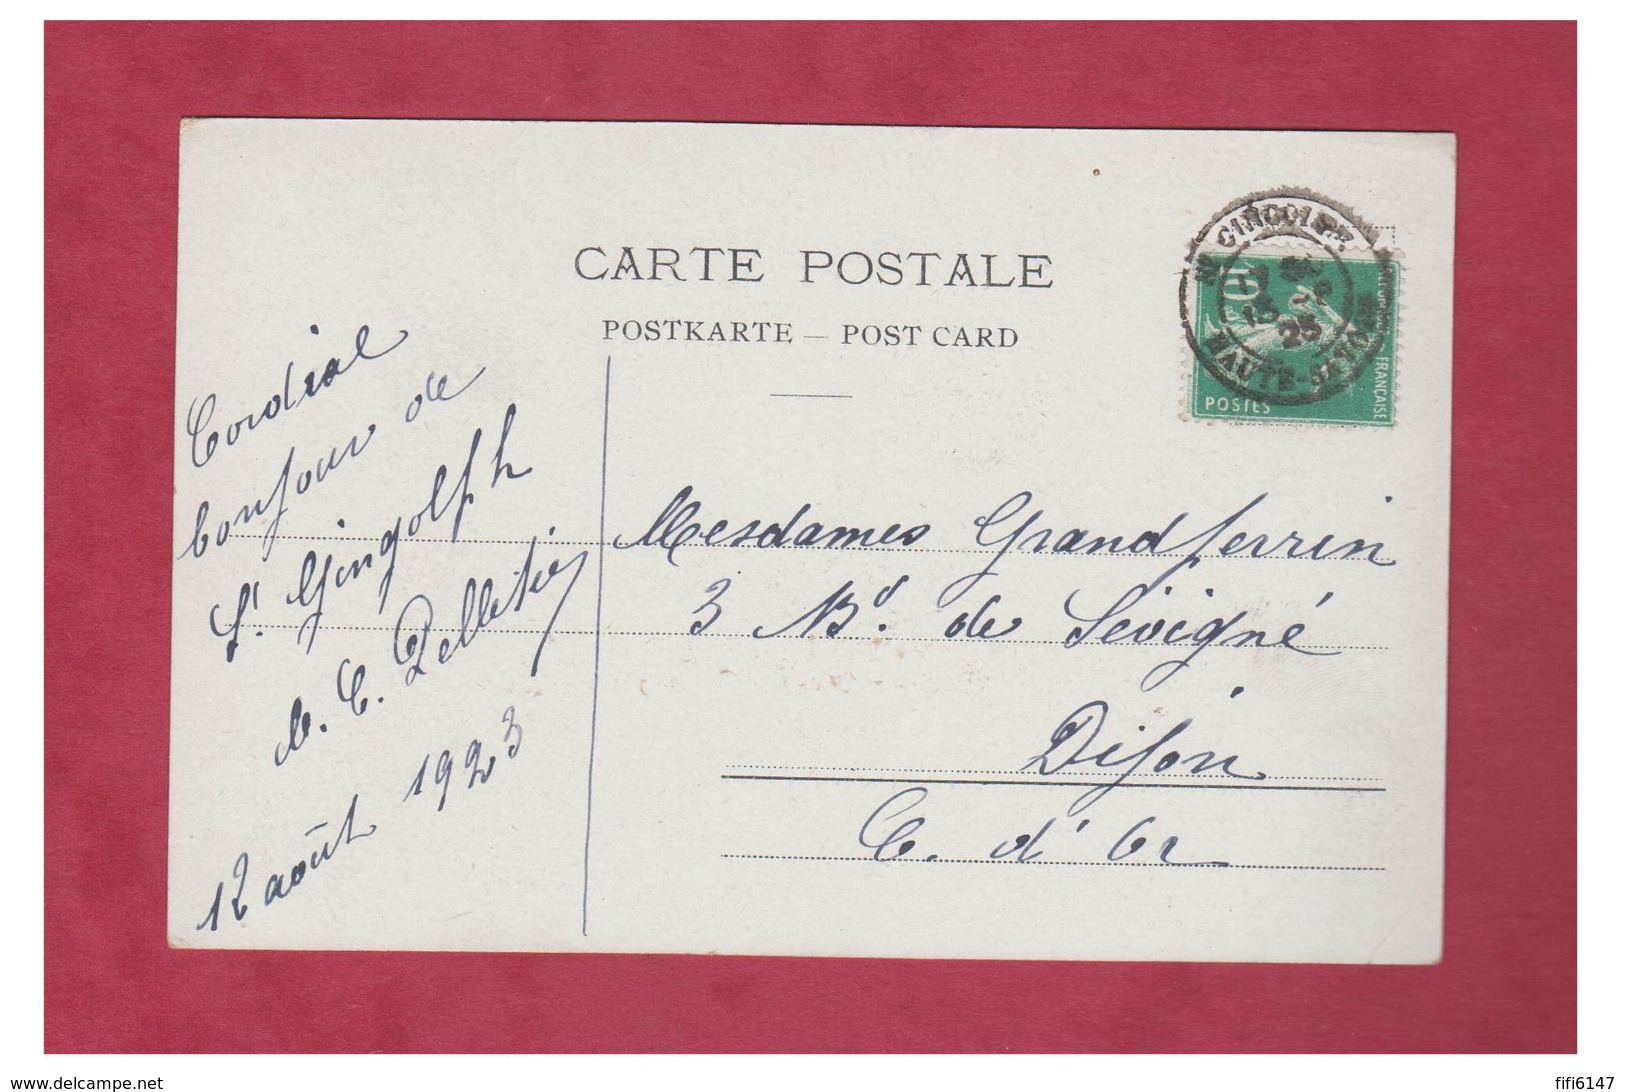 CARTE POSTALE
POSTKARTE — POST CARD
Cordial
bonjour de
St. Gingolph
C. Pelletier
12 août 1923
Mesdames Grandperrin
3 Bd. de Sévigné
Dijon
C. d'Or
10
POSTES
FRANÇAISE
GINGOLPH
HAUTE-SAVOIE
23
www.delcampe.net
fifi6147